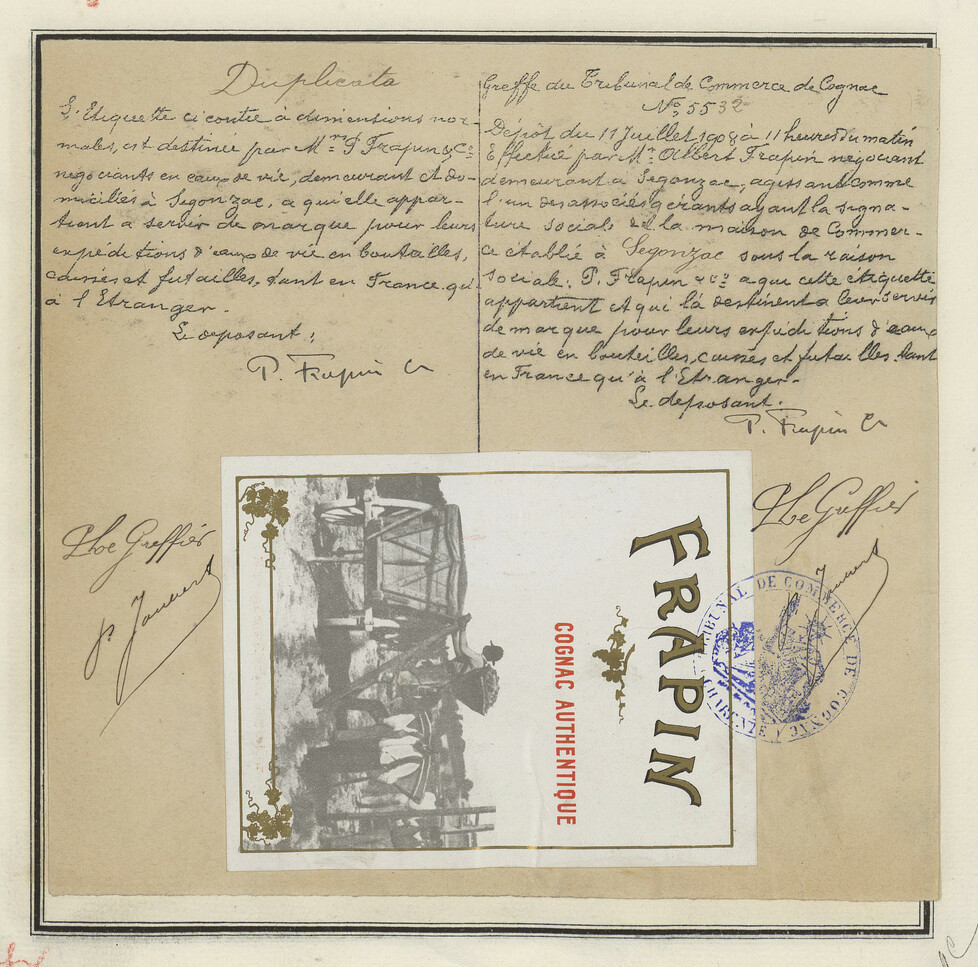 Duplicata
L'Etiquette ci contre à dimensions nor-
males, est destinée par Mrs P. Frapin & Co
négociants en eaux de vie, demeurant et do-
miciliés à Segonzac, a qui elle appar-
tient a servir de marque pour leurs
expéditions d'eaux de vie en bouteilles,
caisses et futailles, tant en France qu'
à l'Etranger.
Le deposant:
P. Frapin Co
Greffe du Tribunal de Commerce de Cognac
No 5532
Dépôt du 11 Juillet 1908 à 11 heures du matin
Effectué par Mr Albert Frapin négociant
demeurant à Segonzac, agissant comme
l'un des associés gérants ayant la signa-
ture sociale de la maison de Commer-
ce établie à Segonzac sous la raison
sociale: P. Frapin & Co a qui cette étiquette
appartient et qui la destinent a leur servir
de marque pour leurs expéditions d'eaux
de vie en bouteilles, caisses et futailles, tant
en France qu'à l'Etranger.
Le deposant.
P. Frapin Co
Le Greffier
Le Greffier
FRAPIN
COGNAC AUTHENTIQUE
TRIBUNAL DE COMMERCE DE COGNAC
(CHARENTE)